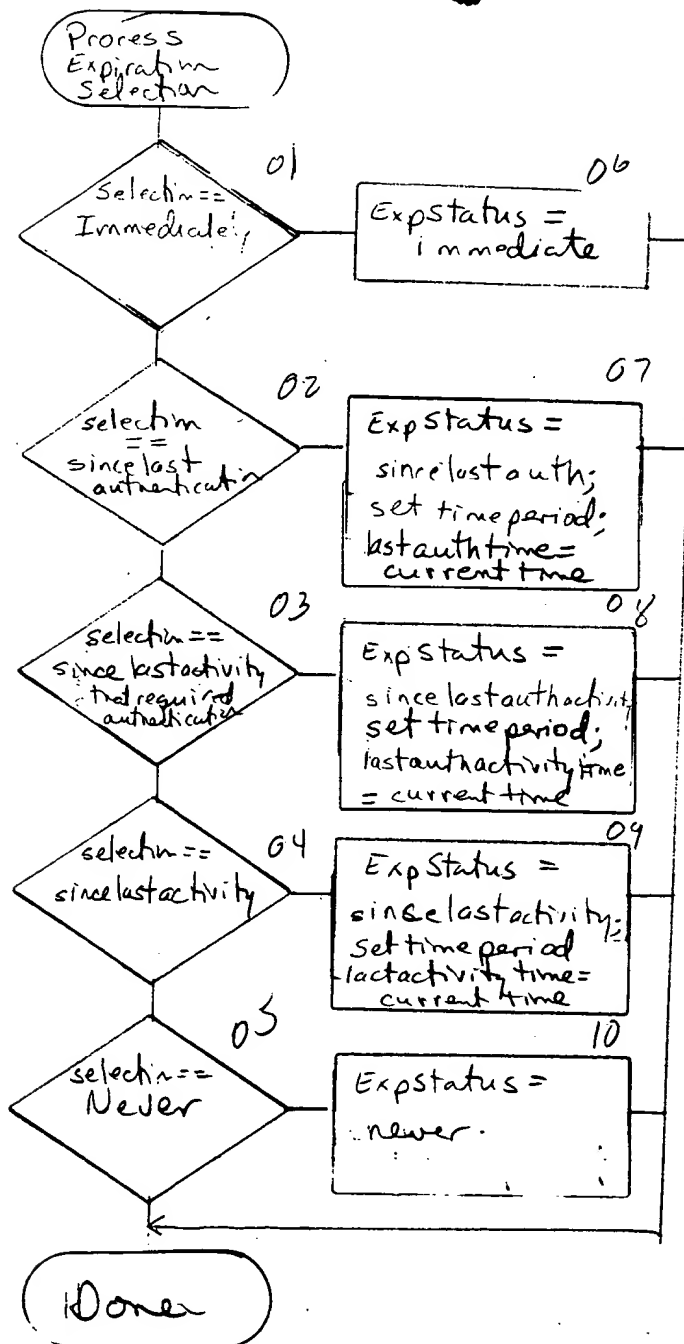 Process
Expiration
Selection
01
Selection==
Immediate
06
ExpStatus =
immediate
02
selection
==
since last
authentication
07
ExpStatus =
sincelastauth;
set timeperiod;
lastauthtime=
current time
03
selection==
since lastactivity
that required
authentication
08
ExpStatus =
since lastauthactivity
set timeperiod;
lastauthactivitytime
= current time
04
selection==
sincelastactivity
09
ExpStatus =
sinselastactivity;
set time period
lactactivity time=
current time
05
selection==
Never
10
ExpStatus =
never.
Done